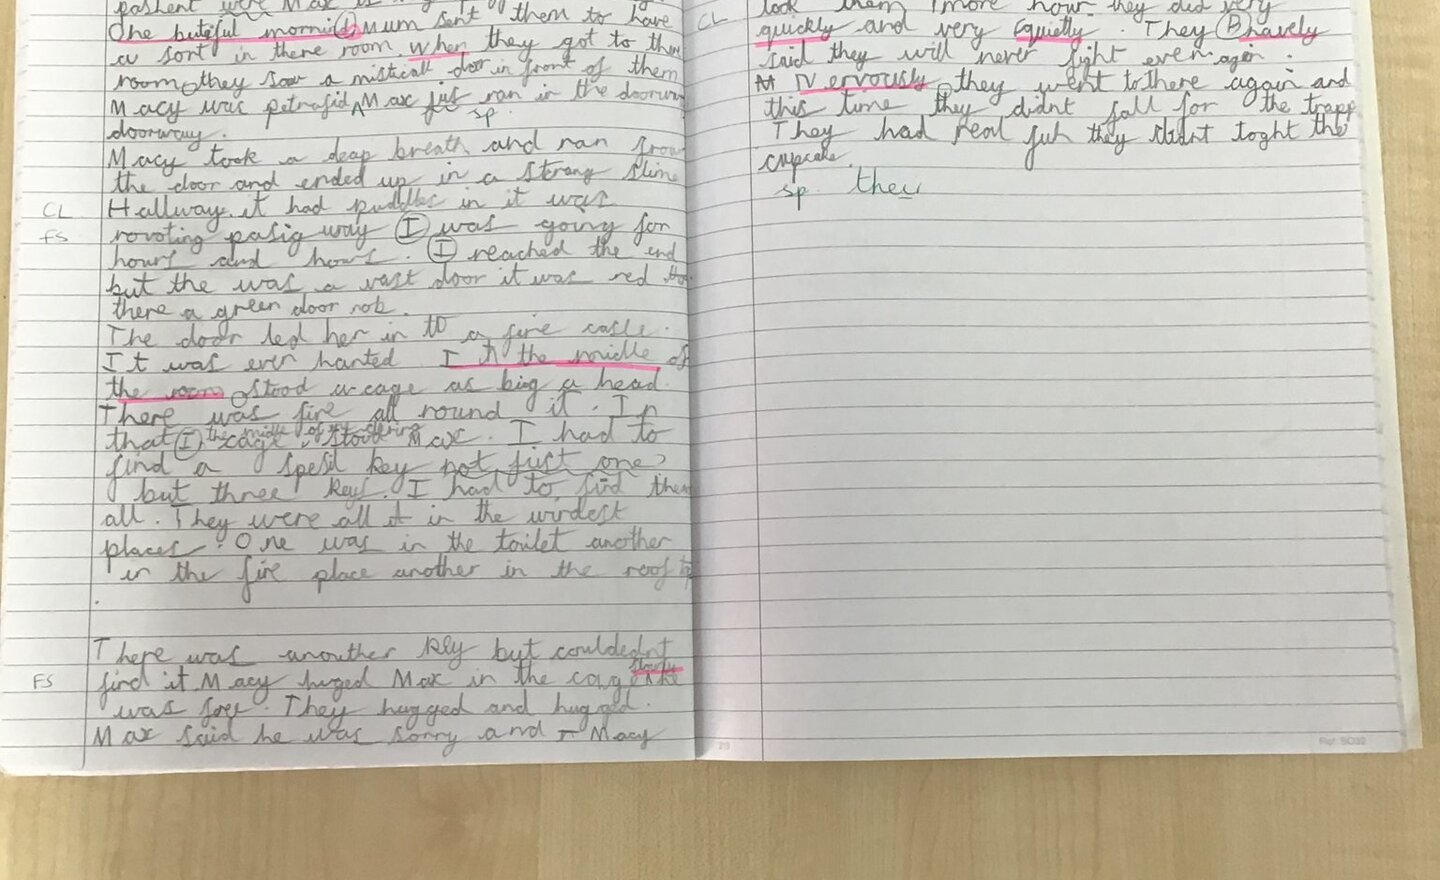 One buteful morning Mum sent them to have
a sort in there room. When they got to ther
room they saw a misticall door in front of them
Macy was petrafid Max jus ran in the doorway
sp
doorway.
Macy took a deap breath and ran
the door and ended up in a strang slime
CL Hallway. it had puddles in it was
FS pasig way I was going for
hours and hours. I reached the end
but the was a vast door it was red
there a green door nob.
The door led her in to a fire casle.
It was even hanted. In the middle of
the room stood a cage as big a head.
There was fire all round it. In
that cage stood Max. I had to
the middle of
find a spesil key not just one
but three keys. I had to find them
all. They were all in the wirdest
places. One was in the toilet another
in the fire place another in the roof top
.
There was anouther key but couldednt
FS find it Macy huged Max in the cag
was free. They hugged and hugged.
Max said he was sorry and Macy
CL look them more how they did very
quickly and very quietly. They Bravely
said they will never fight ever again.
Nervously they went to there again and
this time they didnt fall for the trapp
They had real fun they didnt the
cupcake.
sp. they
29
Ref: SO32